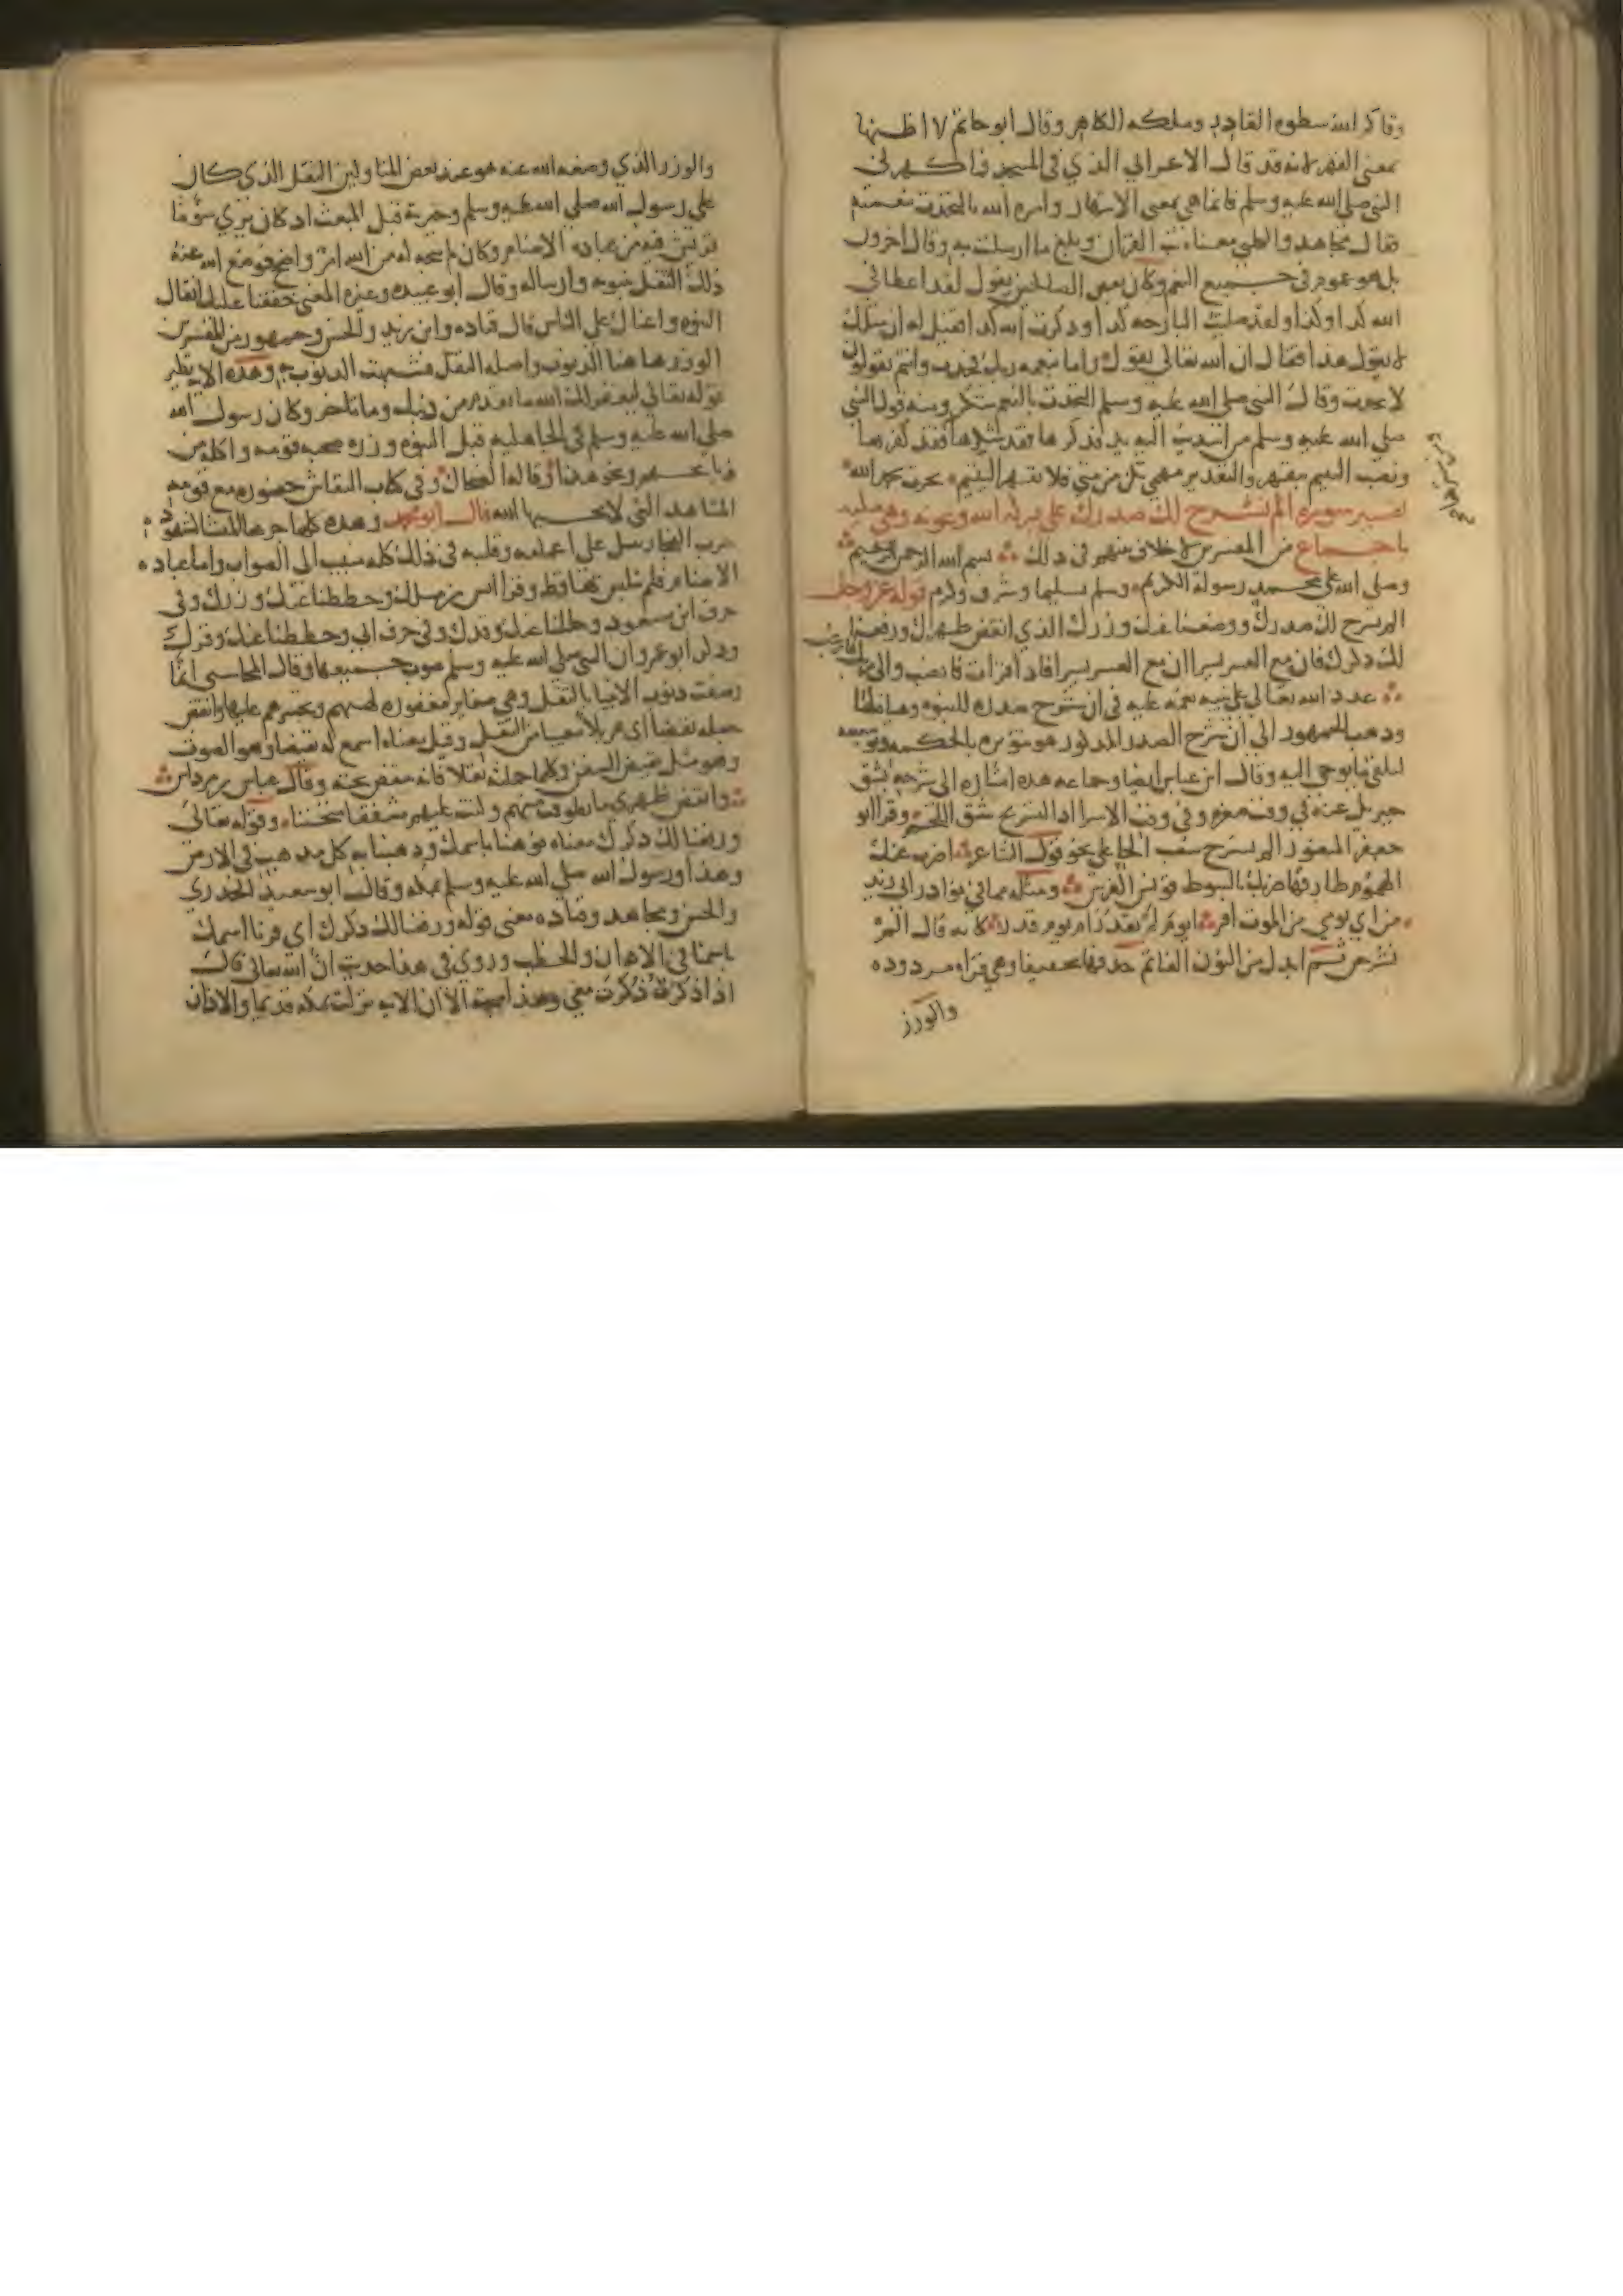 وقاكر الله سطوه القادر وملكه الكاهر وقال ابو حاتم لا اظنها
بمعنى القهر لانه قد قال الاعرابي الذي في المسجد فاكهرني
النبي صلي الله عليه وسلم فانما هي بمعنى الاستهار وامره الله بالتحدث بنعمته
فقال مجاهد والكلبي معناه بث القران وبلغ ما ارسلت به وقال اخرون
بل هو عموم في جميع النعم وكان بعض الصالحين يقول لقد اعطاني
الله كدا وكدا ولقد صليت البارحه كدا وذكرت الله كدا فقيل له ان مثلك
لا يقول هذا فقال ان الله تعالى يقول واما بنعمه ربك فحدث وانتم تقولون
لا تحدث وقال النبي صلي الله عليه وسلم التحدث بالنعم شكر ومنه قول النبي
صلي الله عليه وسلم من اسديت اليه يد فذكرها فقد شكرها ومن سترها فقد كفرها
ونصب اليتيم بتقهر والتقدير مهمى يكن من شي فلا تقهر اليتيم نجزت بحمد الله
تفسير سوره الم نشرح لك صدرك على بركه الله وعونه وهي مكيه
باجماع من المفسرين لا خلاف بينهم في ذلك بسم الله الرحمن الرحيم
وصلى الله على محمد رسوله الكريم وسلم تسليما وشرف وكرم قوله عز وجل
الم نشرح لك صدرك ووضعنا عنك وزرك الذي انقض ظهرك ورفعنا
لك ذكرك فان مع العسر يسرا ان مع العسر يسرا فاذا فرغت فانصب والى ربك فارغب
عدد الله تعالي على نبيه نعمه عليه في ان شرح صدره للنبوه وهياه لها
وذهب الجمهور الى ان شرح الصدر المذكور هو تنويره بالحكمه وتوسعته
لتلقي ما يوحي اليه وقال ابن عباس ايضا وجماعه هذه اشاره الى شرحه بشق
جبريل عنه في وقت صغره وفي وقت الاسرا اذ التشريح شق اللحم وقرا ابو
جعفر المنصور الم نشرح بنصب الحا علي نحو قول الشاعر اضرب عنك
الهموم طارقها ضربك بالسوط قونس الفرس ومثله مما في نوادر ابي زيد
من اي يومي من الموت افر ايوم لم يقدر ام يوم قدر كانه قال الم
نشرحن ثم ابدل من النون الفا ثم حذفها تخفيفا وهي قراه مردوده
والوزر
والوزر الذي وضعه الله عنه هو عند بعض المتاولين الثقل الذي كان
علي رسول الله صلي الله عليه وسلم وحيرته قبل المبعث اذ كان يري سوء ما
قريش فيه من عباده الاصنام وكان لم يتجه له من الله امر واضح فوضع الله عنه
ذلك الثقل بنبوته وارساله وقال ابو عبيده وغيره المعنى خففنا عليك اثقال
النبوه واعناك على الناس قال قتاده وابن زيد والحسن وجمهور من المفسرين
الوزر هاهنا الذنوب واصله الثقل فشبهت الذنوب به وهذه الايه نظير
قوله تعالي ليغفر لك الله ما تقدم من ذنبك وما تاخر وكان رسول الله
صلي الله عليه وسلم في الجاهليه قبل النبوه وزره صحبه قومه واكله من
ذبائحهم ونحو هذا وقاله الضحاك وفي كتاب النقاش حضوره مع قومه
المشاهد التي لا يحبها الله قال ابو محمد وهذه كلها جرها المنشا كشهوده
حرب الفجار ينبل على اعمامه وقلبه في ذلك كله منيب الى الصواب واما عباده
الاصنام فلم يتلبس بها قط وقرا انس بن مالك وحططنا عنك وزرك وفي
حرف ابن مسعود وحللنا عنك وقرك وفي حرف ابي وحططنا عنك وقرك
وذكر ابو عمرو ان النبي صلي الله عليه وسلم صوب جميعها وقال المحاسبي انما
وصفت ذنوب الانبيا بالثقل وهي صغاير مغفوره لهمهم بها وتحسرهم عليها وانقض
جعله نقضا اى هزيلا معيا من الثقل وقيل معناه اسمع له نقيضا وهو الصوت
وهو مثل نقيض السفن وكلما حملت ثقلا فانه ينتقض تحته وقال عباس بن مرداس
وانقض ظهري ما تطوقت منهم وكنت عليهم مشفقا متحننا وقوله تعالي
ورفعنا لك ذكرك معناه نوهنا باسمك وذهبنا به كل مذهب في الارض
وهذا ورسول الله صلي الله عليه وسلم بمكه وقال ابو سعيد الخدري
والحسن ومجاهد وقتاده معنى قوله ورفعنا لك ذكرك اي قرنا اسمك
باسمنا في الاذان والخطب وروي في هذا حديث ان الله تعالي قال
اذا ذكرت ذكرت معي وهذا متجه الا ان الايه نزلت بمكه قديما والاذان